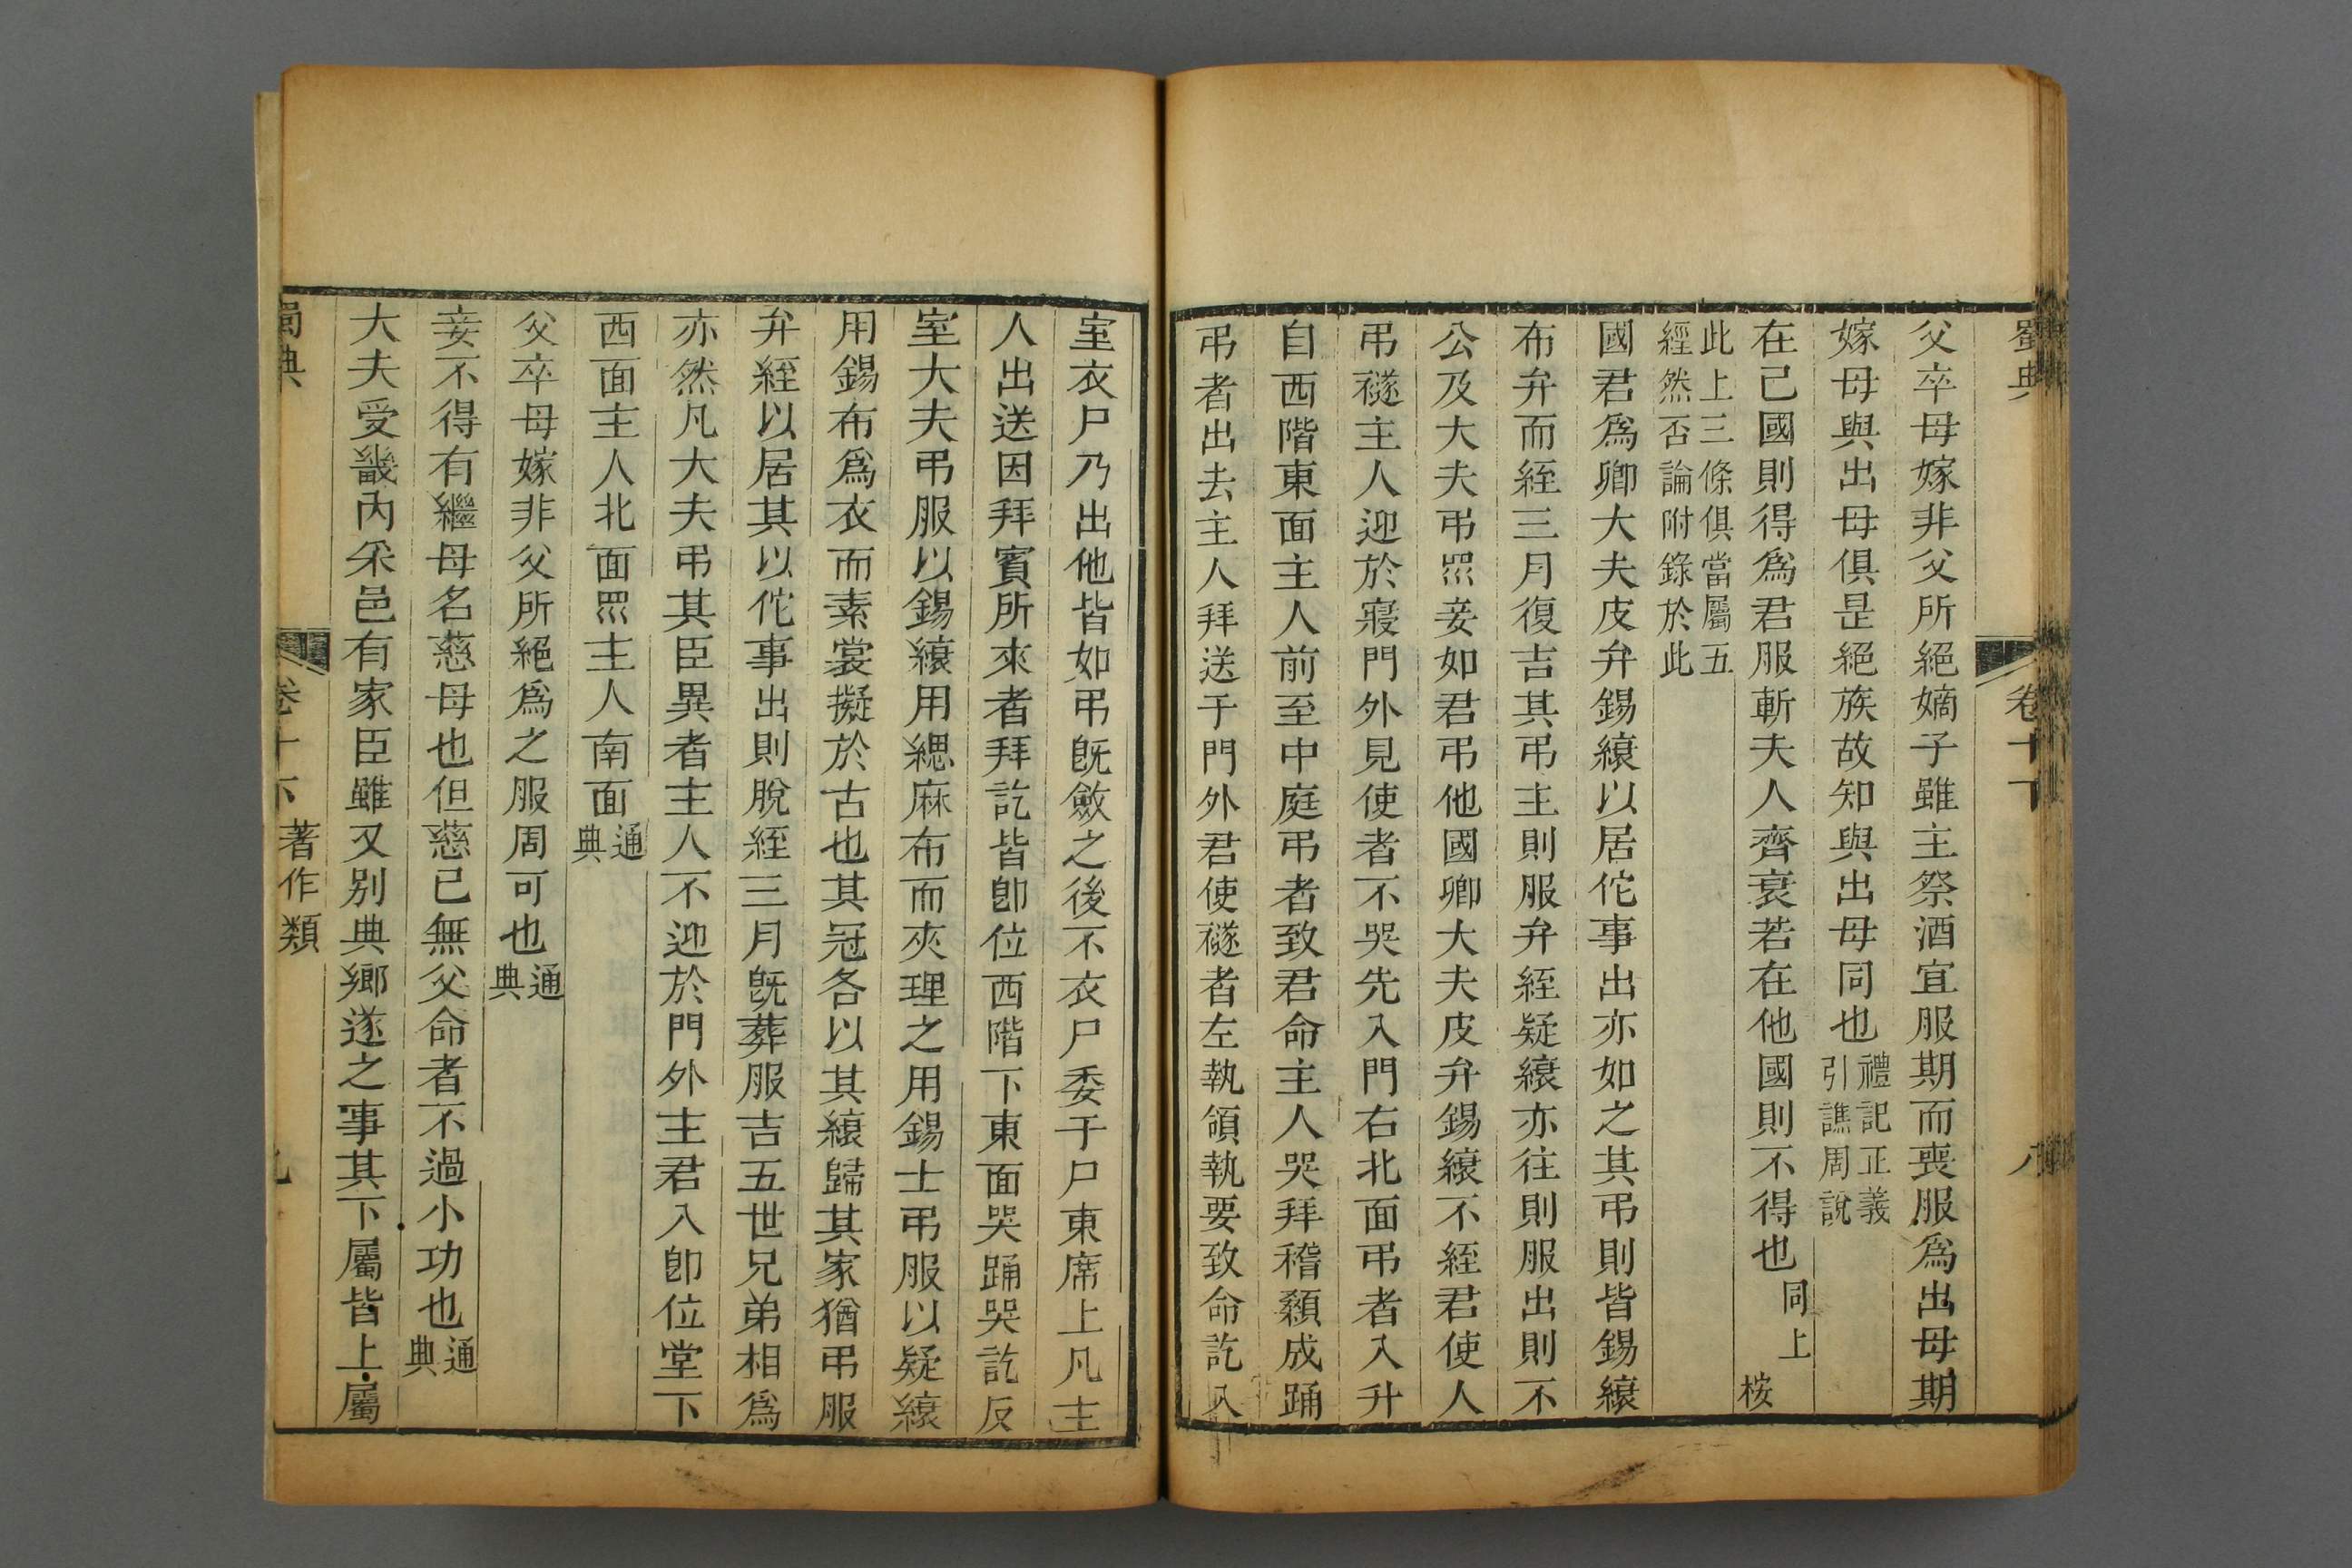 蜀典
卷十下
八
父卒母嫁非父所絕嫡子雖主祭酒宜服期而喪服爲出母期
嫁母與出母俱是絕族故知與出母同也禮記正義
引譙周說
在己國則得爲君服斬夫人齊衰若在他國則不得也同上
桉
此上三條俱當屬五
經然否論附錄於此
國君爲卿大夫皮弁錫縗以居佗事出亦如之其弔則皆錫縗
布弁而絰三月復吉其弔主則服弁絰疑縗亦往則服出則不
公及大夫弔眾妾如君弔他國卿大夫皮弁錫縗不絰君使人
弔襚主人迎於寢門外見使者不哭先入門右北面弔者入升
自西階東面主人前至中庭弔者致君命主人哭拜稽顙成踊
弔者出去主人拜送于門外君使襚者左執領執要致命訖入
室衣尸乃出他皆如弔旣斂之後不衣尸委于尸東席上凡主
人出送因拜賓所來者拜訖皆卽位西階下東面哭踊哭訖反
室大夫弔服以錫縗用緦麻布而夾理之用錫士弔服以疑縗
用錫布爲衣而素裳擬於古也其冠各以其縗歸其家猶弔服
弁絰以居其以佗事出則脫絰三月旣葬服吉五世兄弟相爲
亦然凡大夫弔其臣異者主人不迎於門外主君入卽位堂下
西面主人北面眾主人南面通
典
父卒母嫁非父所絕爲之服周可也通
典
妾不得有繼母名慈母也但慈已無父命者不過小功也通
典
大夫受畿內采邑有家臣雖又別典鄉遂之事其下屬皆上屬
蜀典
卷十下
著作類
九